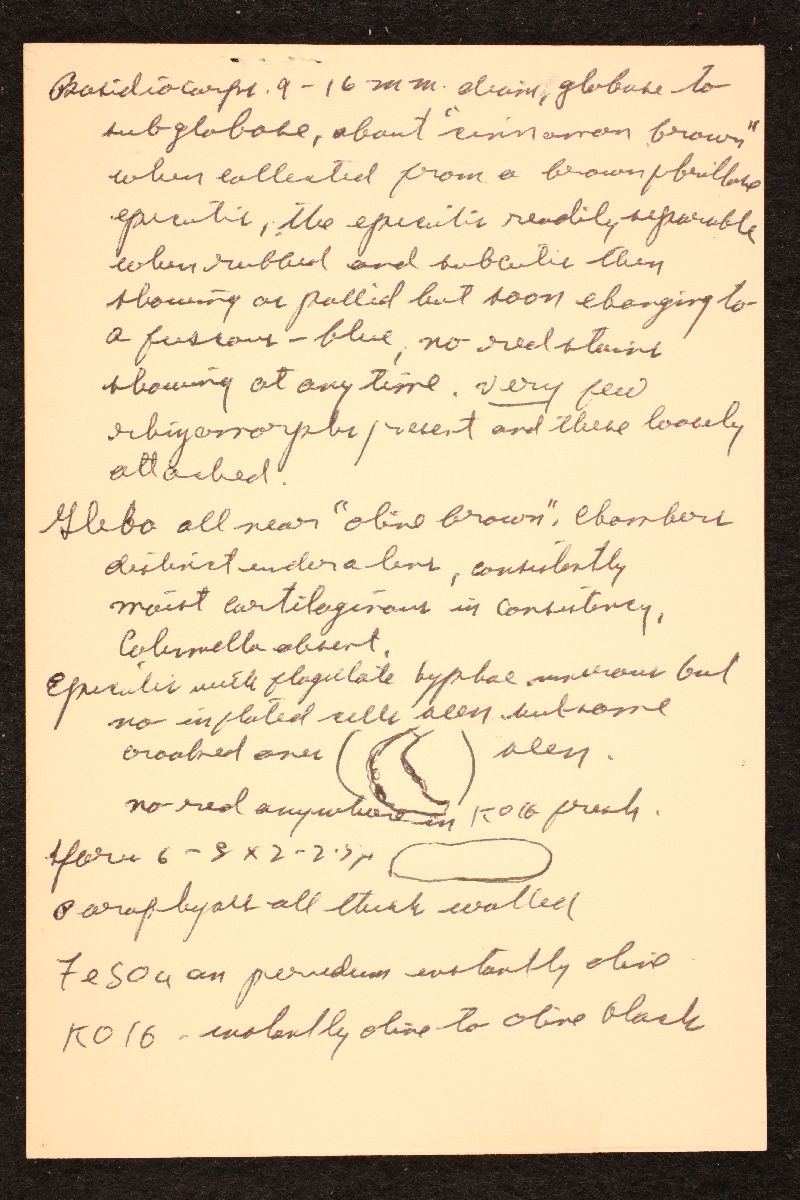 Basidiocarps. 9 - 16 mm. diam, globose to
subglobose, about "cinnamon brown"
when collected from a brown fibrillose
epicutis, the epicutis readily separable
when rubbed and subcutis then
showing as pallid but soon changing to
a fuscous - blue, no red stains
showing at any time. very few
rhizomorphs present and these loosely
attached.
Gleba all near "olive brown". Chambers
distinct under a lens, consistently
moist cartilaginous in consistency,
Columella absent.
Epicutis with flagellate hyphae but
no inflated cells seen but some
crooked ones ( ) seen.
no red anywhere in KOH fresh.
Spores 6 - 8 x 2 - 2.5µ
Paraphyses all thick walled
FeSO4 on peridium instantly olive
KOH - instantly olive to olive black